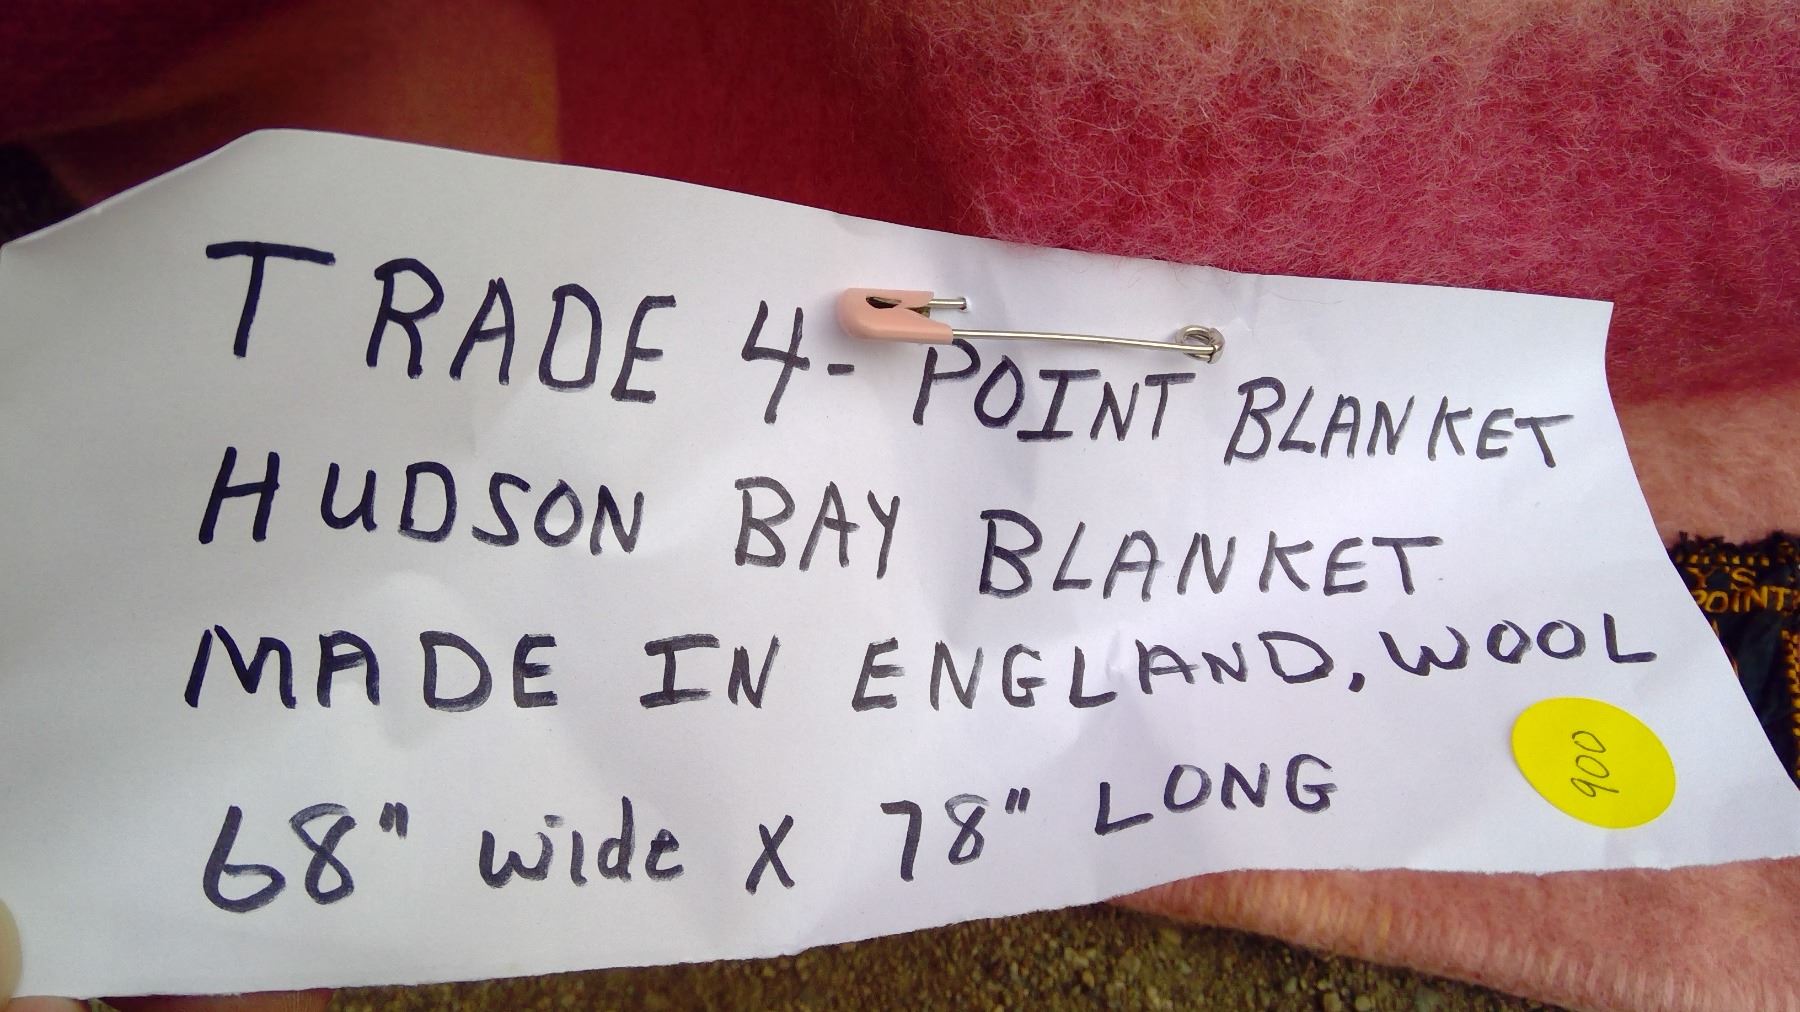 TRADE 4-POINT BLANKET
HUDSON BAY BLANKET
MADE IN ENGLAND, WOOL
68" wide X 78" LONG
900
Y'S
POINT